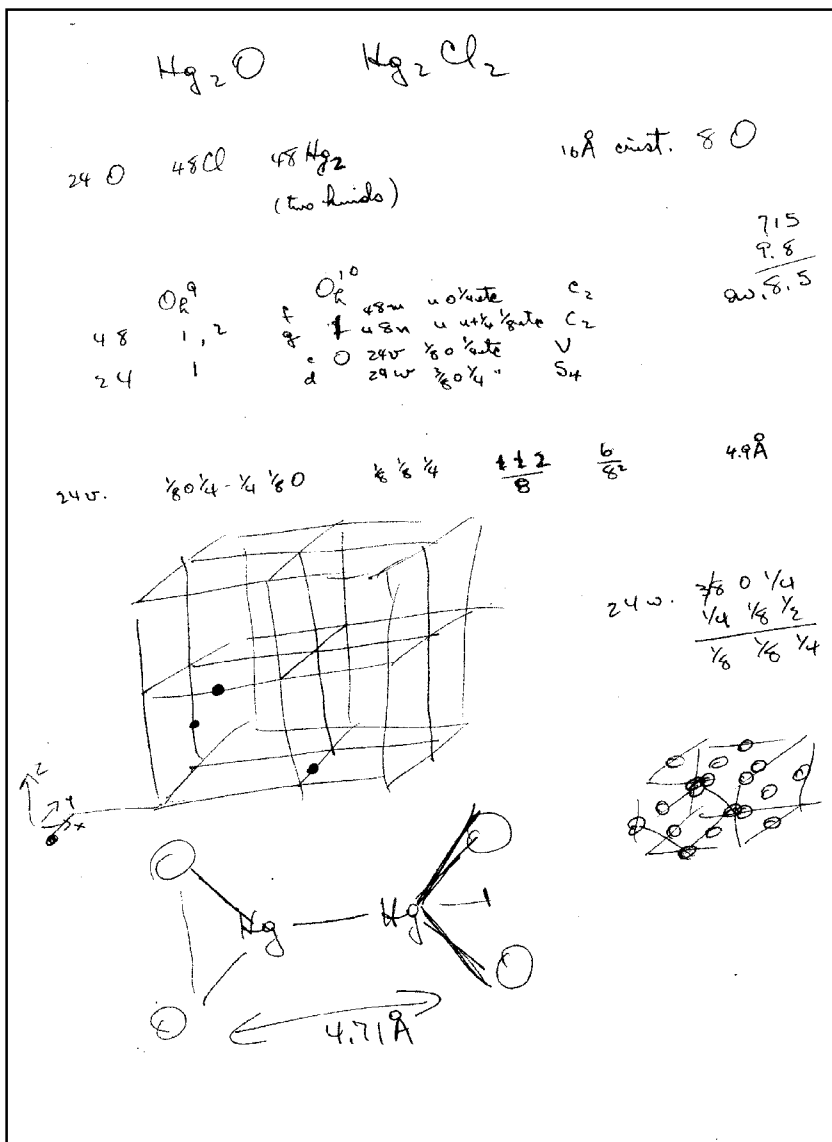 Hg₂O Hg₂Cl₂
24 O 48Cl 48Hg₂ 10Å crist. 8 O
(two kinds)
715
9.8
av. 8.5
Oh⁹ Oh¹⁰
f 48m u 0 ¼ etc C₂
48 1, 2 g 48n u u+¼ ⅛ etc C₂
24 1 c O 24v ⅛ 0 ¼ etc V
d 24w ⅜ 0 ¼ " S₄
24v. ⅛ 0 ¼ - ¼ ⅛ 0 ⅛ ⅛ ¼ 112/8 6/8² 4.9Å
24w. ⅜ 0 ¼
¼ ⅛ ½
⅛ ⅛ ¼
Z
Y
X
Hg Hg
4.71Å